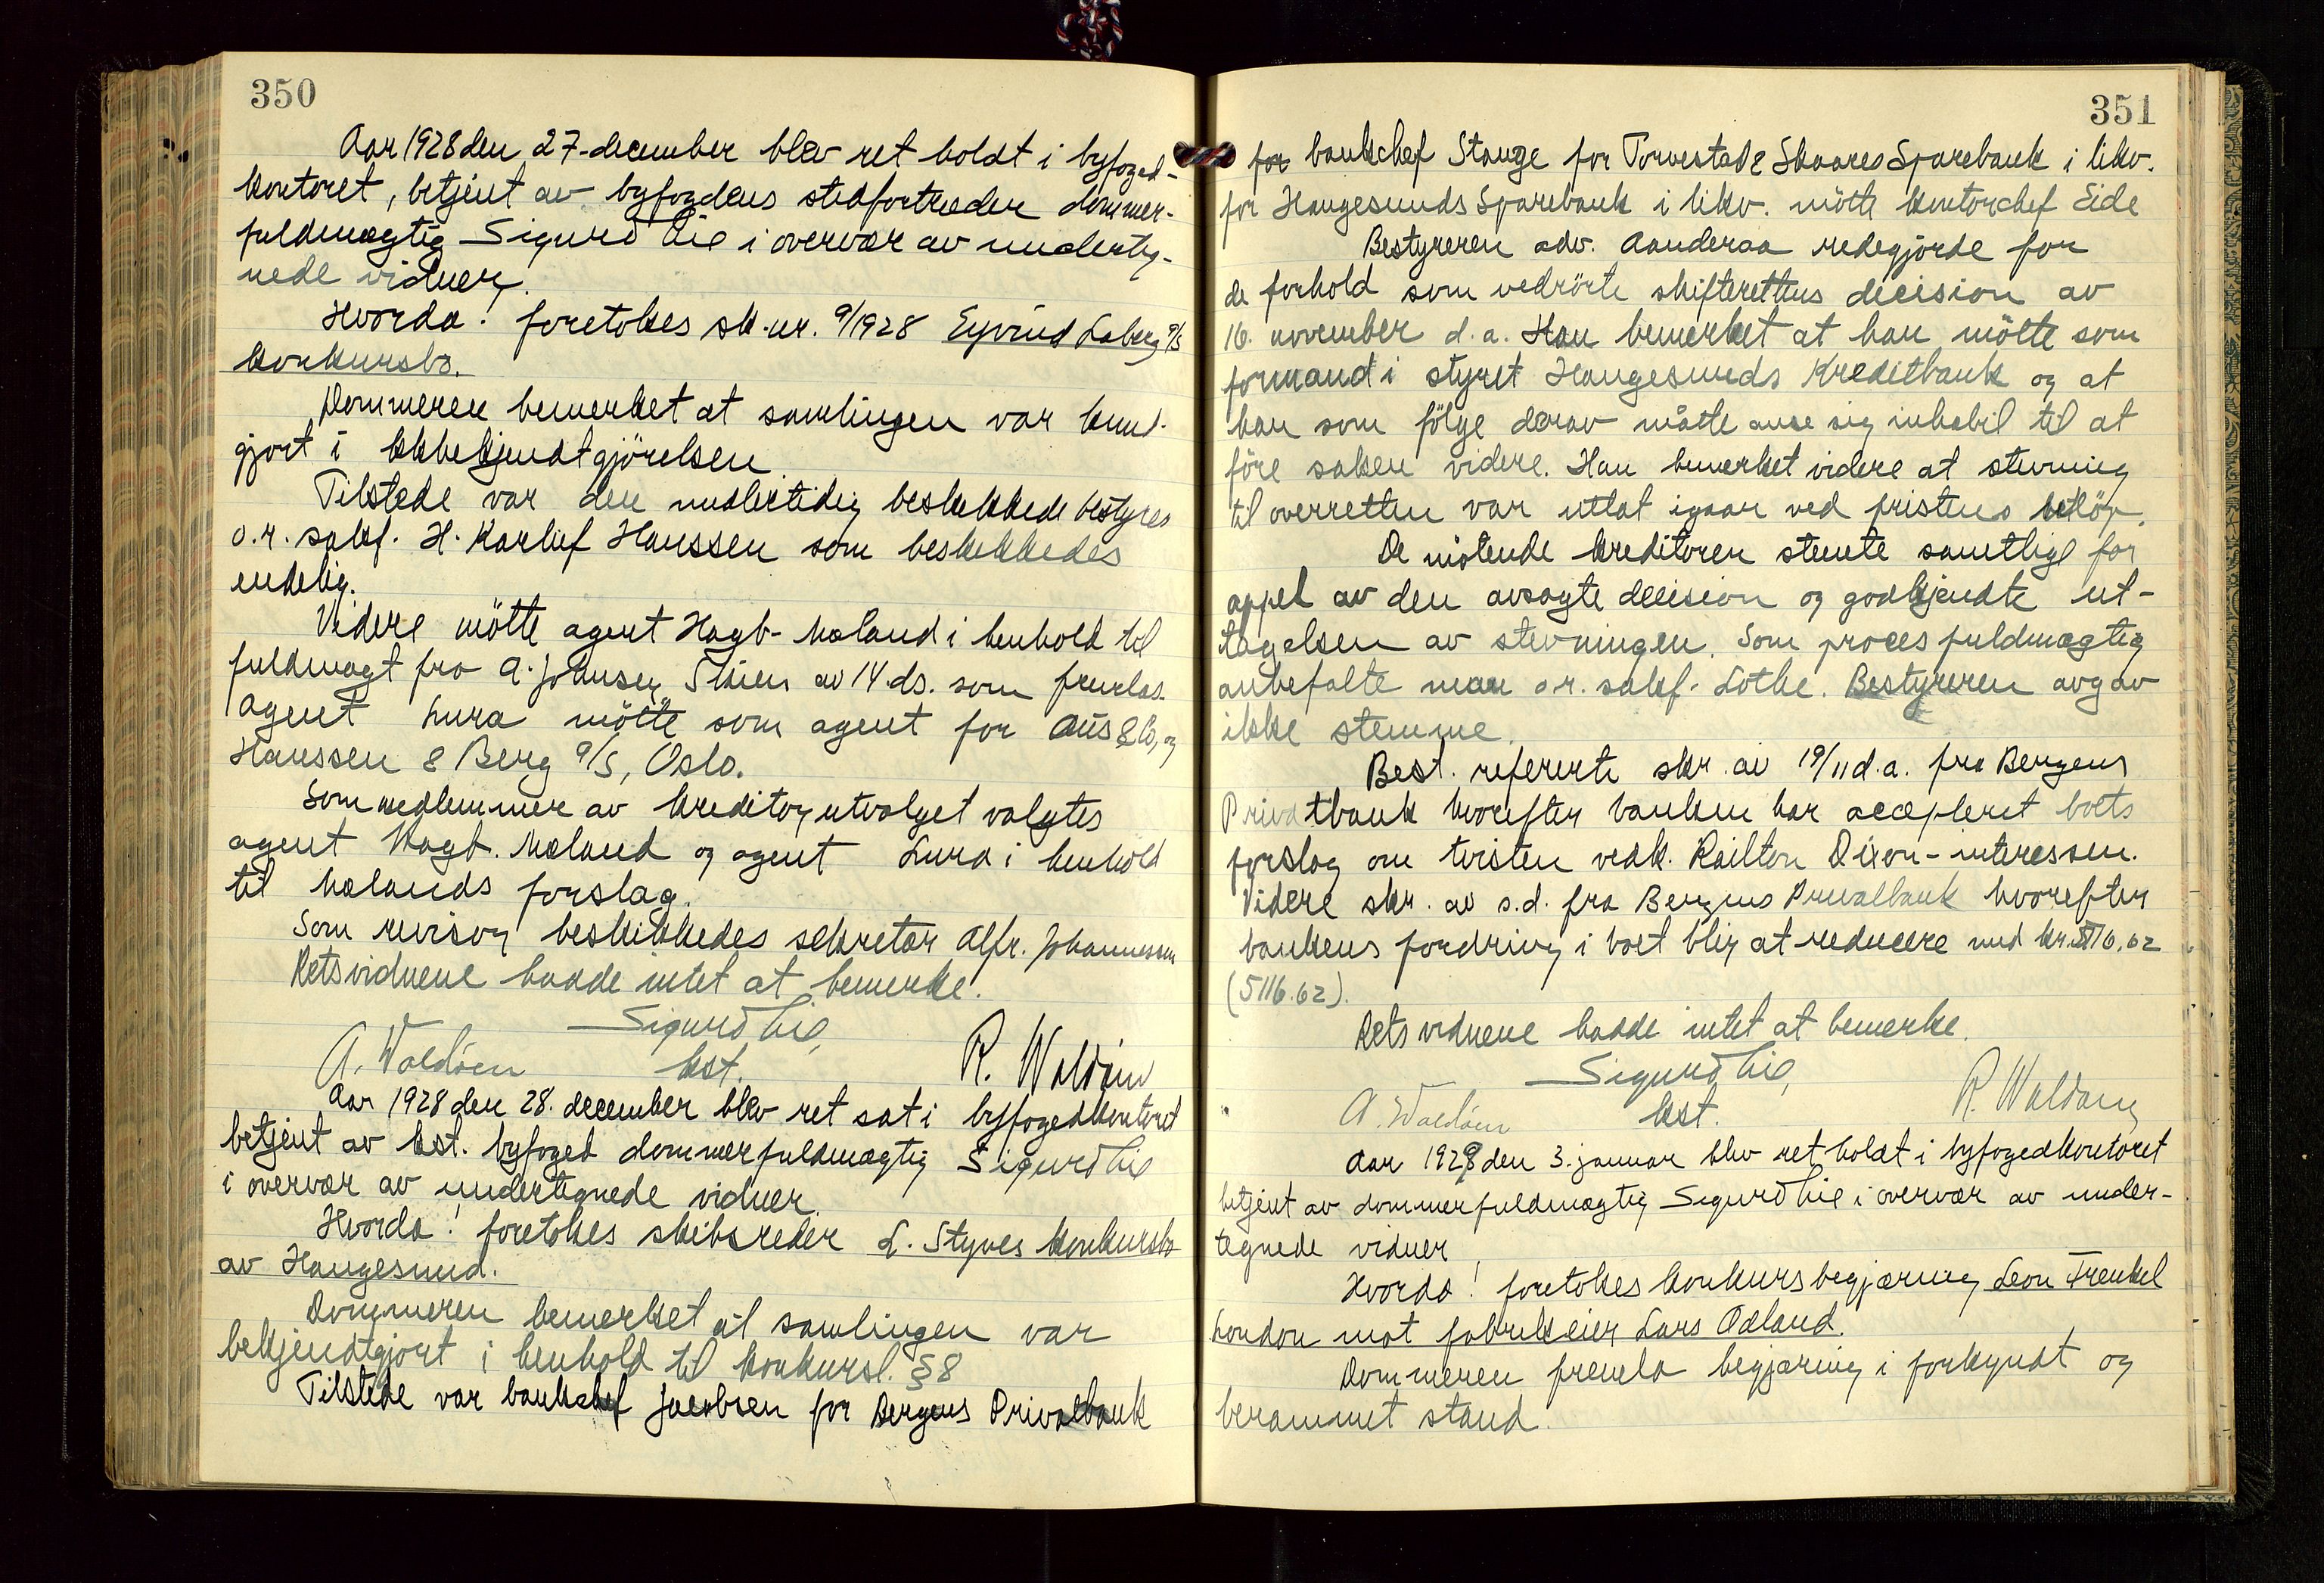 350
Aar 1928 den 27. december blev ret holdt i byfoged-
kontoret, betjent av byfogdens stedfortræder dommer-
fuldmægtig Sigurd Lie i overvær av underteg-
nede vidner.
Hvorda! foretokes sk. nr. 9/1928 Eyvind Laberg A/S
konkursbo.
Dommeren bemerket at samlingen var kund-
gjort i kkbekjendtgjörelsen.
Tilstede var den midlertidig beskikkede bestyrer
o.r. sakf. H. Karluf Hanssen som beskikkedes
endelig.
Videre mötte agent Hagb. Mæland i henhold til
fuldmagt fra A. Johnsen, Skien av 14. ds. som fremlas.
Agent Lura mötte som agent for Aus & Co, og
Hanssen & Berg A/S, Oslo.
Som medlemmer av kreditorutvalget valgtes
agent Hagb. Mæland og agent Lura i henhold
til Mælands forslag.
Som revisor beskikkedes sekretær Alfr. Johannessen
Retsvidnene hadde intet at bemerke.
Sigurd Lie,
A. Waldöen kst. R. Waldöen
Aar 1928 den 28. december blev ret sat i byfogedkontoret
betjent av kst. byfoged dommerfuldmægtig Sigurd Lie
i overvær av undertegnede vidner.
Hvorda! foretokes skibsreder L. Stynes konkursbo
av Haugesund.
Dommeren bemerket at samlingen var
bekjendtgjort i henhold til konkursl. § 8
Tilstede var bankchef Jacobsen for Bergens Privatbank
351
for bankchef Stange for Torvestad & Skaares Sparebank i likv.
for Haugesunds Sparebank i likv. mötte kontorchef Eide
Bestyreren adv. Aanderaa redegjorde for
de forhold som vedrörte skifterettens decision av
16. november d.a. Han bemerket at han mötte som
formand i styret Haugesunds Kreditbank og at
han som fölge derav måtte anse sig inhabil til at
före saken videre. Han bemerket videre at stevning
til overretten var uttat igaar ved fristens utlöp.
De mötende kreditorer stemte samtlige for
appel av den avsagte decision og godkjendte ut-
tagelsen av stevningen. Som procesfuldmægtig
anbefalte man o.r. sakf. Lothe. Bestyreren avgav
ikke stemme.
Best. refererte skr. av 19/11 d.a. fra Bergens
Privatbank hvorefter banken har accepteret boets
forslag om tvisten vedk. Railton Dixon-interessen.
Videre skr. av s.d. fra Bergens Privatbank hvorefter
bankens fordring i boet blir at reducere med kr. 5116,62
(5116.62).
Retsvidnene hadde intet at bemerke.
Sigurd Lie,
A. Waldöen kst. R. Waldöen
Aar 1929 den 3. januar blev ret holdt i byfogedkontoret
betjent av dommerfuldmægtig Sigurd Lie i overvær av under-
tegnede vidner
Hvorda! foretokes konkursbegjæring Leon Frenkel
London mot fabrikeier Lars Ödland.
Dommeren fremla begjæring i forkyndt og
berammet stand.